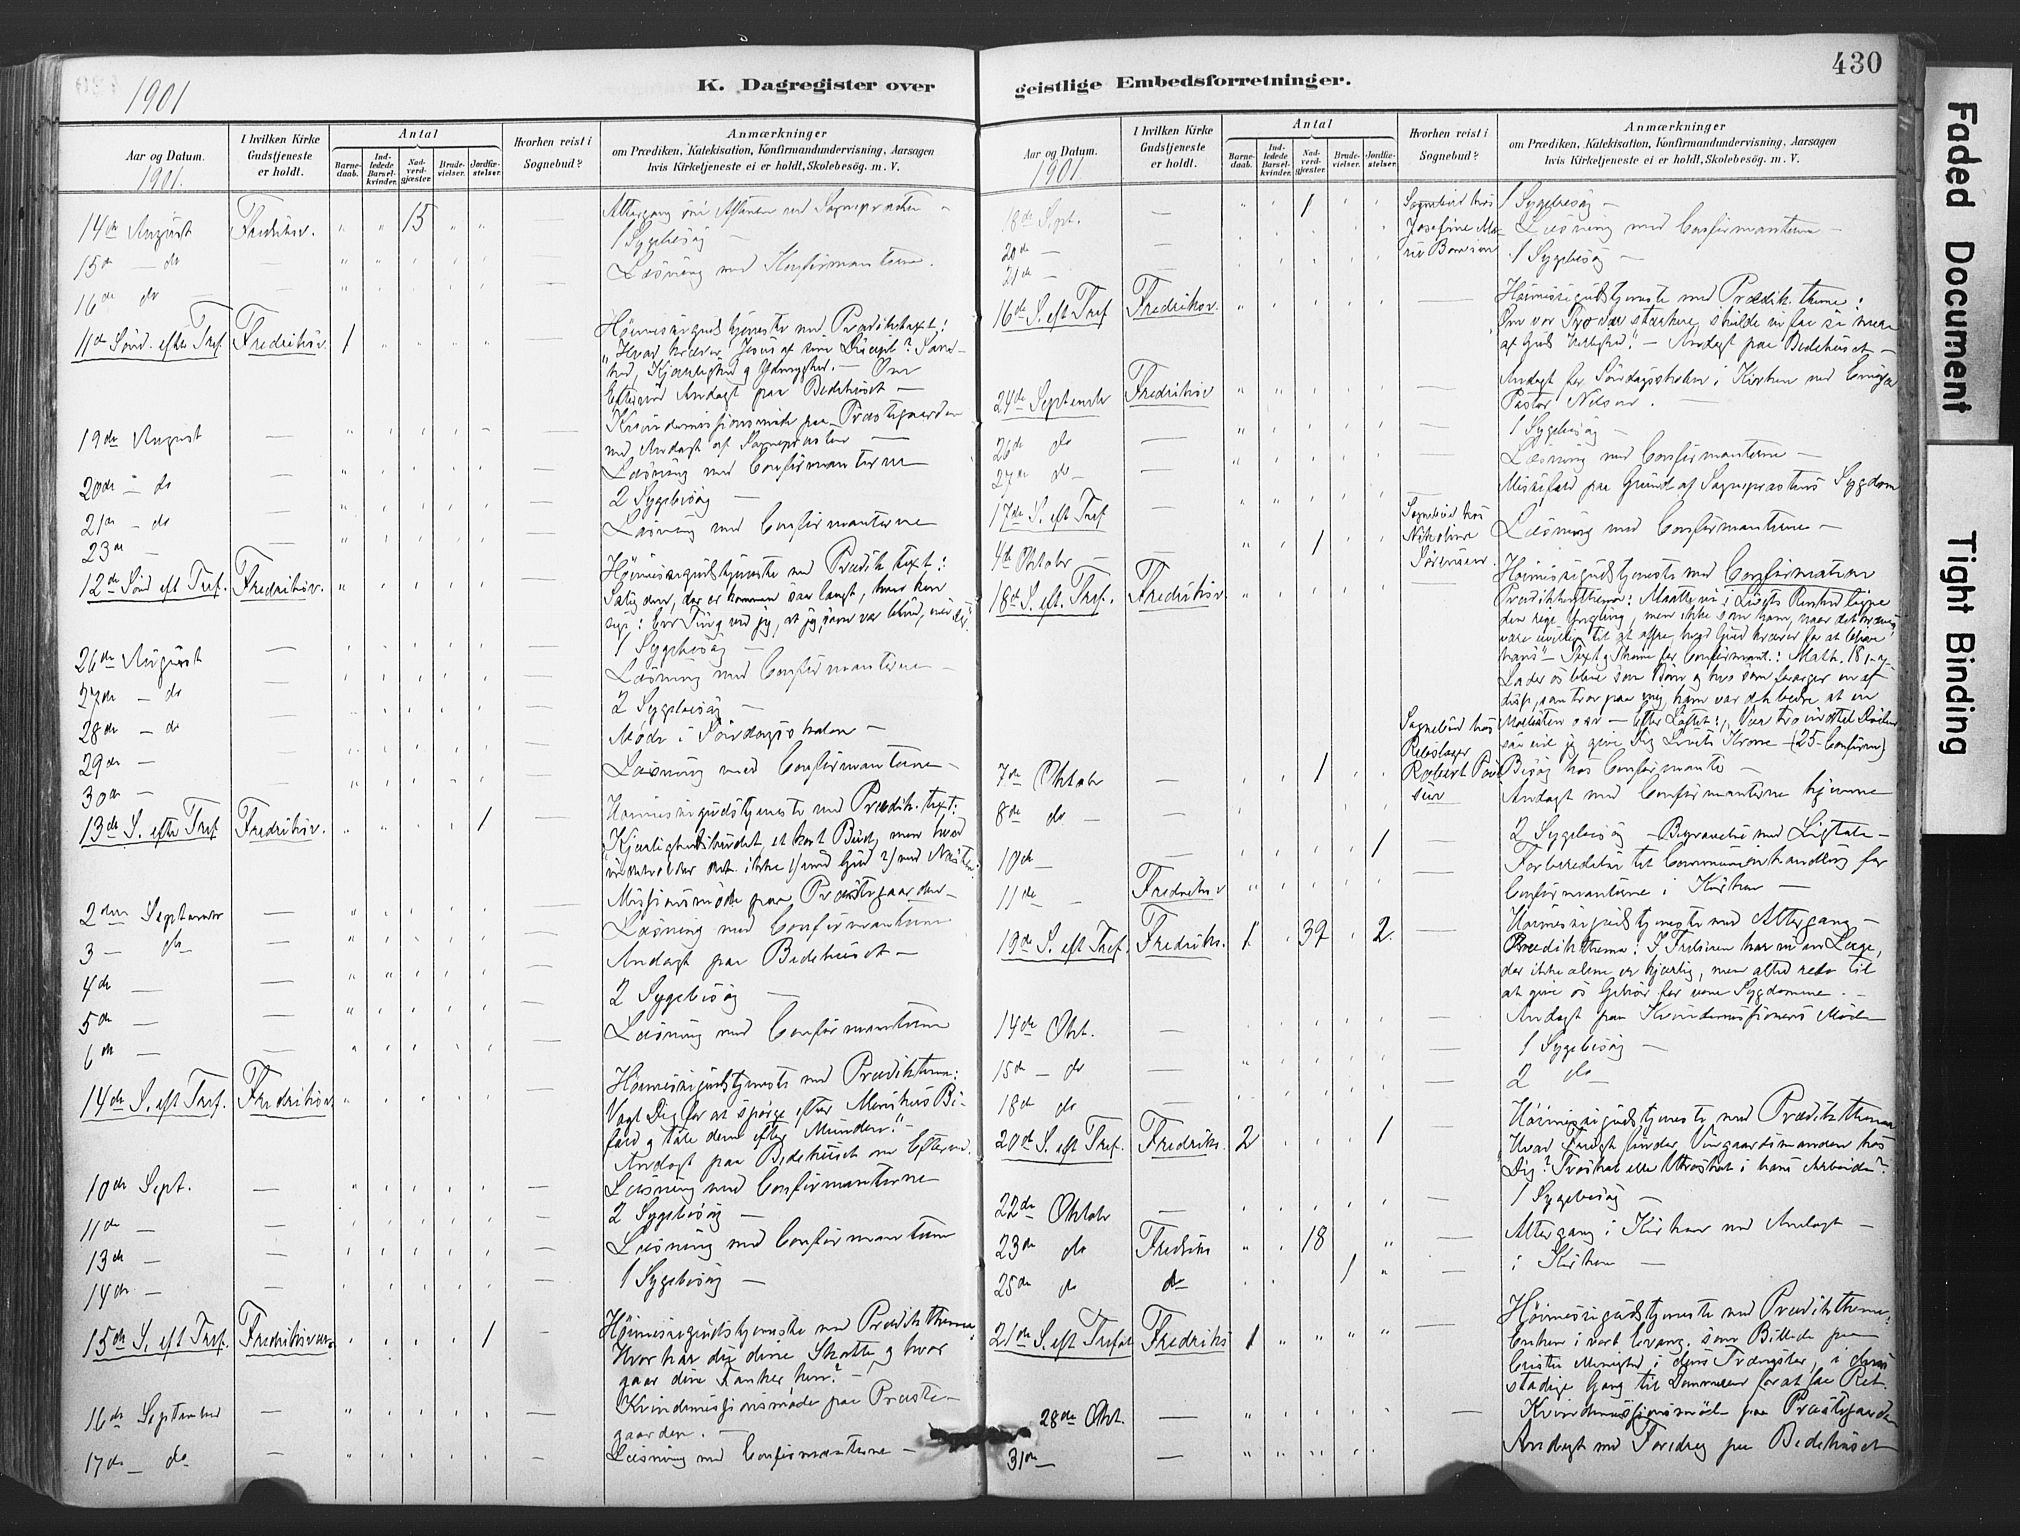 1901
K. Dagregister over
Aar og Datum.
1901.
I hvilken Kirke
Gudstjeneste
er holdt.
Antal
Barne-
daab.
Ind-
ledede
Barsel-
kvinder.
Nad-
verd-
gjæster.
Brude-
vielser.
Jordfæ-
stelser.
Hvorhen reist i
Sognebud?
Anmærkninger
om Prædiken, Katekisation, Konfirmandundervisning, Aarsagen
hvis Kirketjeneste ei er holdt, Skolebesøg. m. V.
14de August Fredriksv. 15 Altergang om Aftenen ved Sognepræsten —
15de — do 1 Sygebesøg —
16de do — Læsning med Konfirmanterne.
11te Sønd. efter Tref. Fredriksv. 1 Høimessegudstjeneste med Præditext:
"Hvad kræver Jesus af sine Disciple? Sand-
hed, Kjærlighed og Ydmyghed. — Om
Efterm. Andagt paa Bedehuset —
19de August — Kvindemissionsmøde paa Præstegaarden
med Andagt af Sognepræsten —
20de — do — Læsning med Confirmanterne
21de — do — 2 Sygebesøg —
23de — Læsning med Confirmanterne
12te Sønd eft Tref. Fredriksv. Høimessegudstjeneste med Prædik text:
Salig den, der er kommen saa langt, hvor han
sige: Een Ting ved jeg, at jeg, som var blind, nu ser.
26de August — 1 Sygebesøg —
27de — do — Læsning med Confirmanterne —
28de — do — 2 Sygebesøg —
29de — Møde i Søndagsskolen —
30de — Læsning med Confirmanterne —
13de S. efter Tref. Fredriksv. 1 Høimessegudstjeneste med Prædik. text:
Kjærlighedsbudet, et kort Bud, men hvad
indeholder det ikke 1) mod Gud 2) mod Næsten.
2den September — Missionsmøde paa Præstegaarden —
3 — do — Læsning med Confirmanterne
4de — Andagt paa Bedehuset —
5de — 2 Sygebesøg —
6te — Læsning med Confirmanterne
14de S. eft Tref. Fredriksv. Høimessegudstjeneste med Prædikthema:
Vogt Dig for at spørge efter Menskers Bi-
fald og tale dem efter Munden." —
Andagt paa Bedehuset om Efterm.
10de Sept. — Læsning med Confirmanterne
11te — 2 Sygebesøg —
13de — Læsning med Confirmanterne
14de — 1 Sygebesøg —
15de S. eft Tref. Fredriksvær. 1 Høimessegudstjeneste med Prædikthema:
Hvor har dig dine Skatte og hvor
gaar dine Tanker hen? —
16de September — Kvindemissionsmøde paa Præste-
gaarden. —
17de — do — Læsning med Confirmanterne —
geistlige Embedsforretninger.
430
Aar og Datum.
1901.
I hvilken Kirke
Gudstjeneste
er holdt.
Antal
Barne-
daab.
Ind-
ledede
Barsel-
kvinder.
Nad-
verd-
gjæster.
Brude-
vielser.
Jordfæ-
stelser.
Hvorhen reist i
Sognebud?
Anmærkninger
om Prædiken, Katekisation, Konfirmandundervisning, Aarsagen
hvis Kirketjeneste ei er holdt, Skolebesøg. m. V.
18de Sept. — 1 Sognebud hos Josefine 1 Sygebesøg —
20de — Læsning med Confirmanterne —
21de — 1 Sygebesøg —
16de S. eft Tref Fredriksv. Høimessegudstjeneste med Prædik. thema:
Om vor Tro var stærkere, skulde vi faa se mere
af Guds Herlighed." — Andagt paa Bedehuset —
24de September Fredriksv Andagt for Søndagsskolen i Kirken ved
Pastor Nilsen. —
26de do — 1 Sygebesøg —
27de do — Læsning med Confirmanterne —
17de S. eft Tref — Messefald paa Grund af Sognepræstens Sygdom
4de Oktober — 1 Sognebud hos Nikoline Sørensen. Læsning med Confirmanterne —
18de S. eft. Tref. Fredriksv. Høimessegudstjeneste med Confirmation
Prædikenthema: Maatte vi i Livets Renhed ligne
den rige Yngling, men ikke som ham, naar det
være uvillig til at ofre, hvad Gud kræver for at blive
hans" — Text og Thema for Confirmant.: Math. 18,
— Efter Løftet: Vær tro indtil Døden
saa vil jeg give Dig Livets Krone — (25 Confirm)
7de Oktober — 1 Sognebud hos Rebslager Robert Besøg hos Confirmanter —
8de do — Andagt med Confirmanterne hjemme
10de — 1 2 Sygebesøg — Begravelse med Ligtale —
11te — Fredriksv Forberedelse til Communionhandling for
Confirmanterne i Kirken —
19de S. eft Tref. Fredriks. 1 39 2 Høimessegudstjeneste med Altergang —
Prædikthema: I Frelseren har vi en Læge,
der ikke alene er kjærlig, men altid rede til
at give os Gehør for vore Sygdomme. —
14de Okt. — Andagt paa Kvindemissionens Møde
15de — do — 1 Sygebesøg —
18de do — 2 do —
20de S. eft Tref. Fredriks. 2 1 Høimessegudstjeneste med Prædikthema
Hvad Frugt finder Vingaardsmanden hos
Dig? Troskab eller Utroskab i hans Arbeide?
22de Oktober — 1 Sygebesøg —
23de do Fredriks 18 Altergang i Kirken med Andagt —
25de do do 1 i Kirken —
21de S. eft Trefol Fredriks 1 Høimessegudstjeneste med Prædikthema:
Enken i vort Evang. som Billede paa
Cristi Menighed i dens Trængsler, i dens
stadige Gang til Dommeren for at faa Ret.
28de Okt. — Kvindemissionsmøde paa Præstegaarden
31de — Andagt med Foredrag paa Bedehuset
Faded Document
Tight Binding